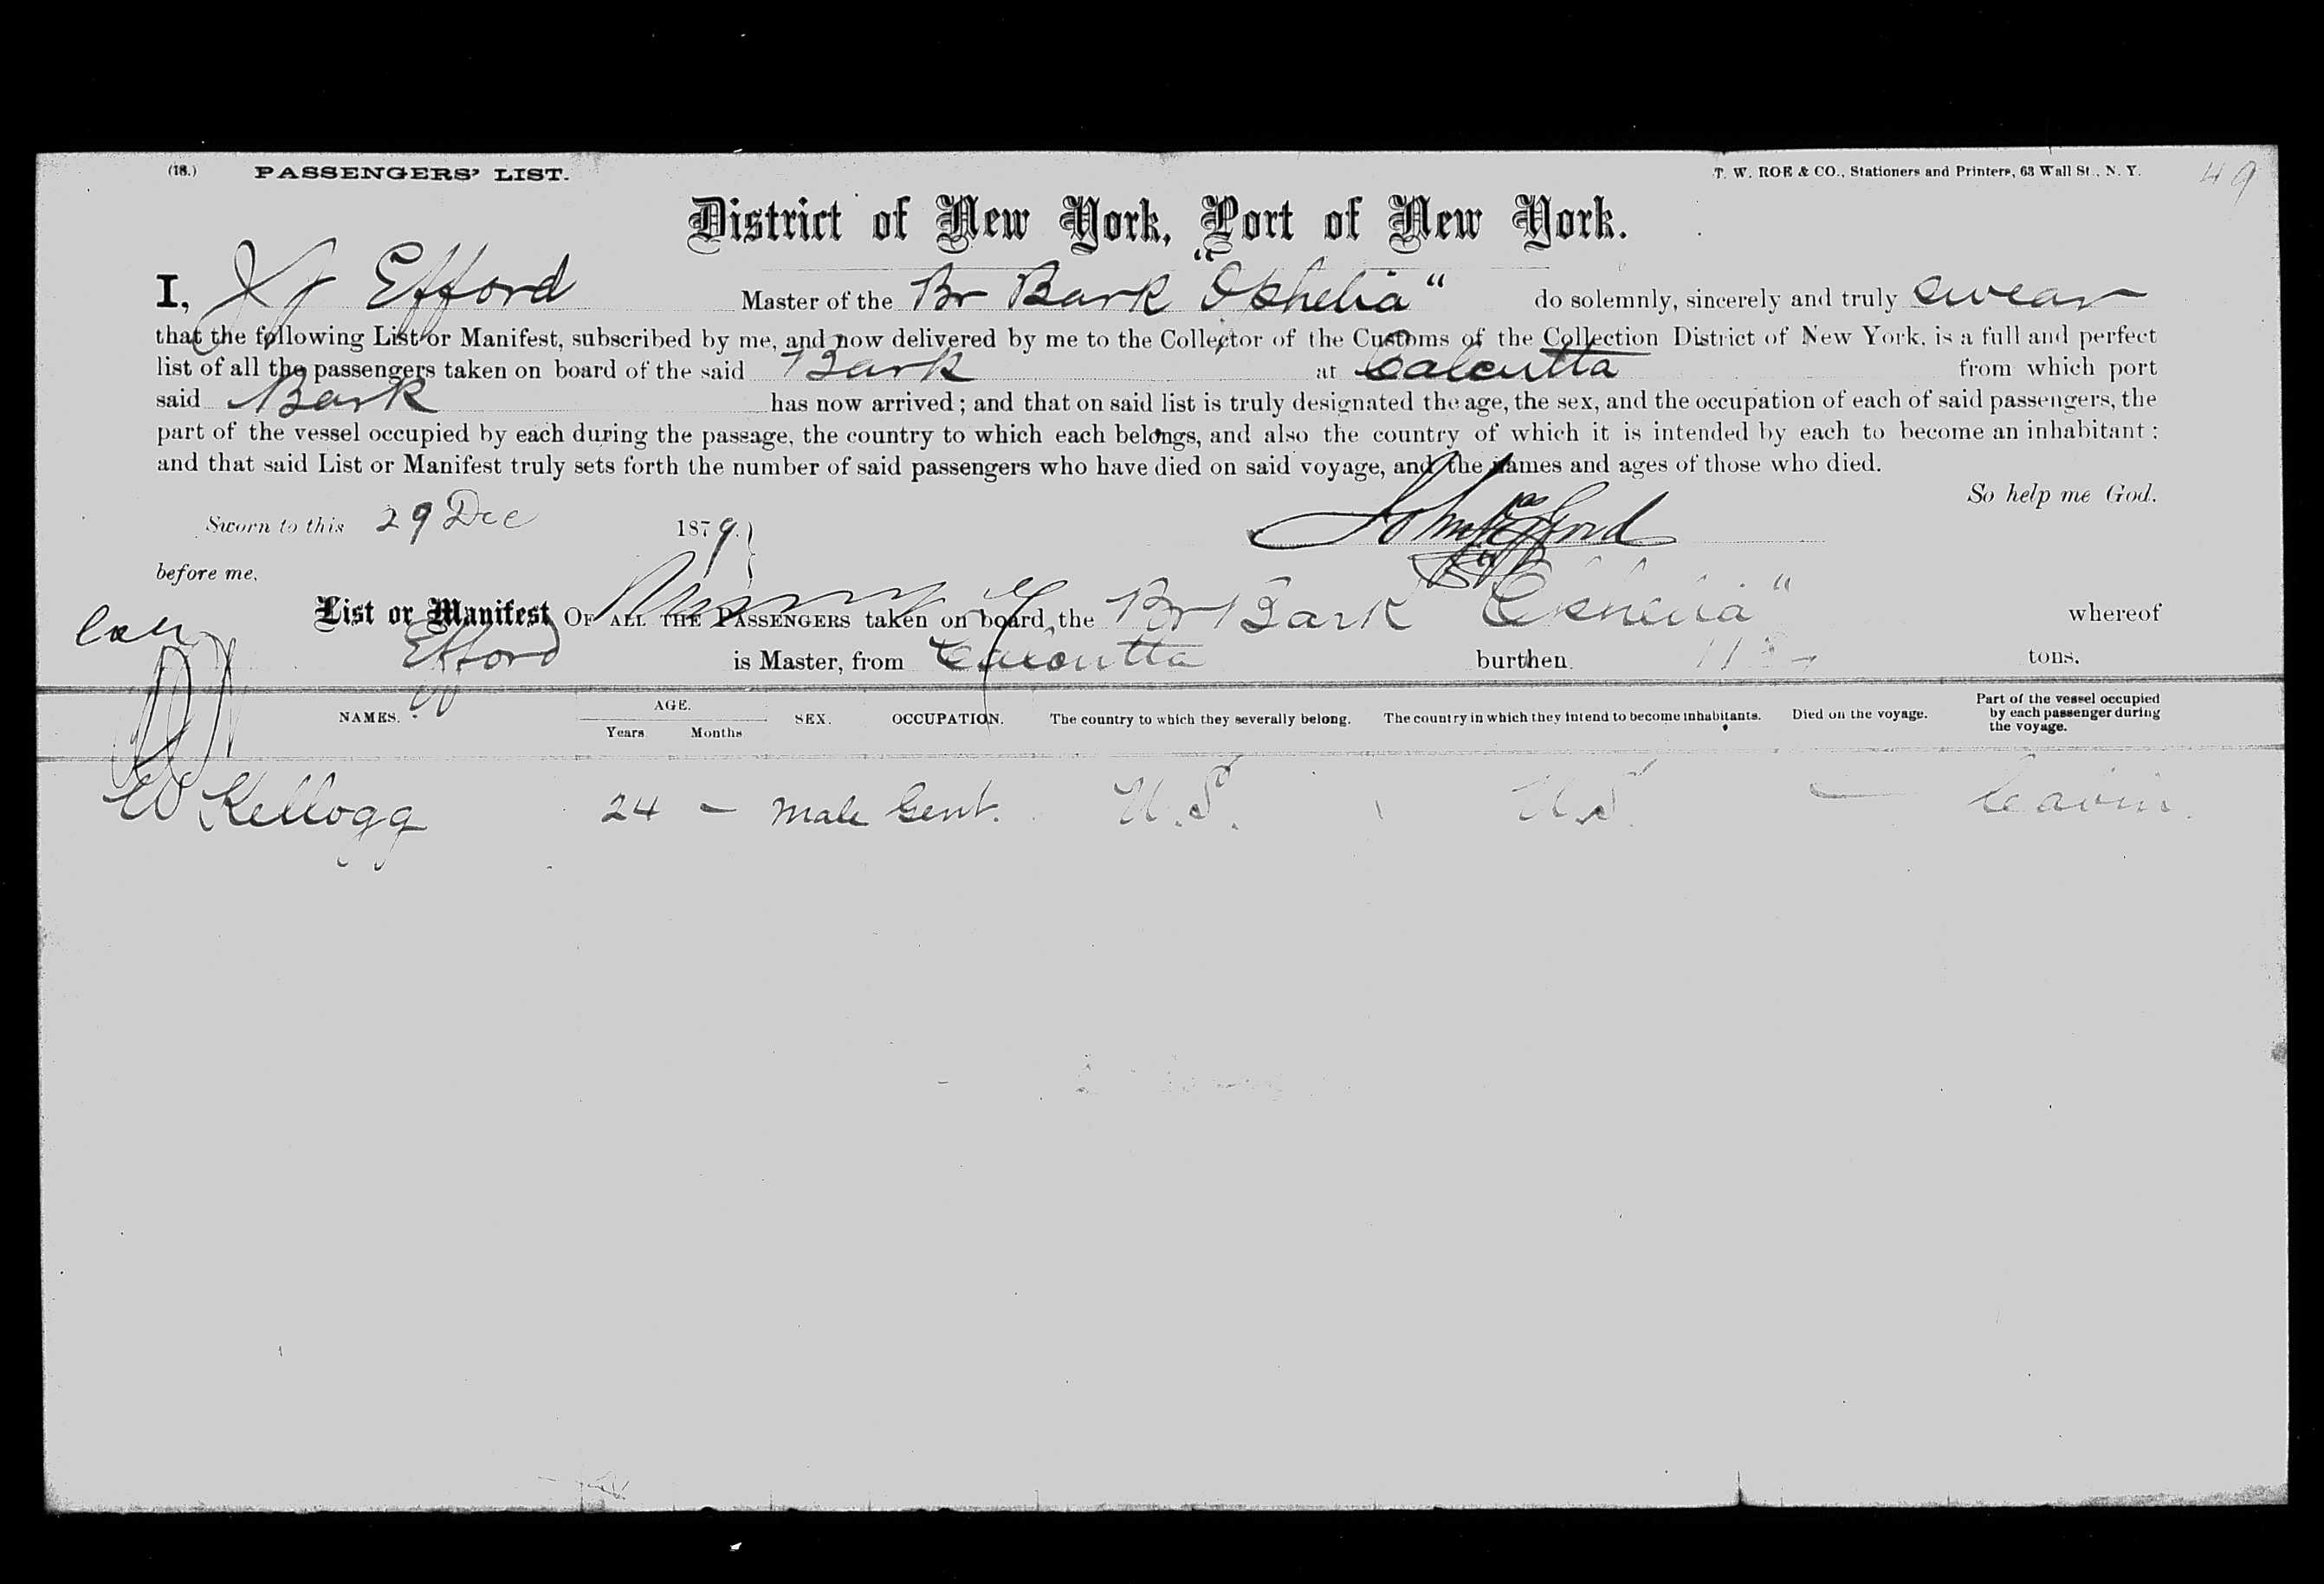 (18.) PASSENGERS' LIST. T. W. ROE & CO., Stationers and Printers, 63 Wall St., N. Y. 49
District of New York, Port of New York.
I, Efford Master of the Br Bark "Ophelia" do solemnly, sincerely and truly swear
that the following List or Manifest, subscribed by me, and now delivered by me to the Collector of the Customs of the Collection District of New York, is a full and perfect
list of all the passengers taken on board of the said Bark at Calcutta from which port
said Bark has now arrived; and that on said list is truly designated the age, the sex, and the occupation of each of said passengers, the
part of the vessel occupied by each during the passage, the country to which each belongs, and also the country of which it is intended by each to become an inhabitant:
and that said List or Manifest truly sets forth the number of said passengers who have died on said voyage, and the names and ages of those who died.
So help me God.
Sworn to this 29 Dec 1879. John Efford
before me,
List or Manifest OF ALL THE PASSENGERS taken on board the Br Bark Ophelia" whereof
Efford is Master, from Calcutta burthen tons.
NAMES. AGE. Years Months SEX. OCCUPATION. The country to which they severally belong. The country in which they intend to become inhabitants. Died on the voyage. Part of the vessel occupied by each passenger during the voyage.
W Kellogg 24 - Male Gent. U.S. U.S. - Cabin.